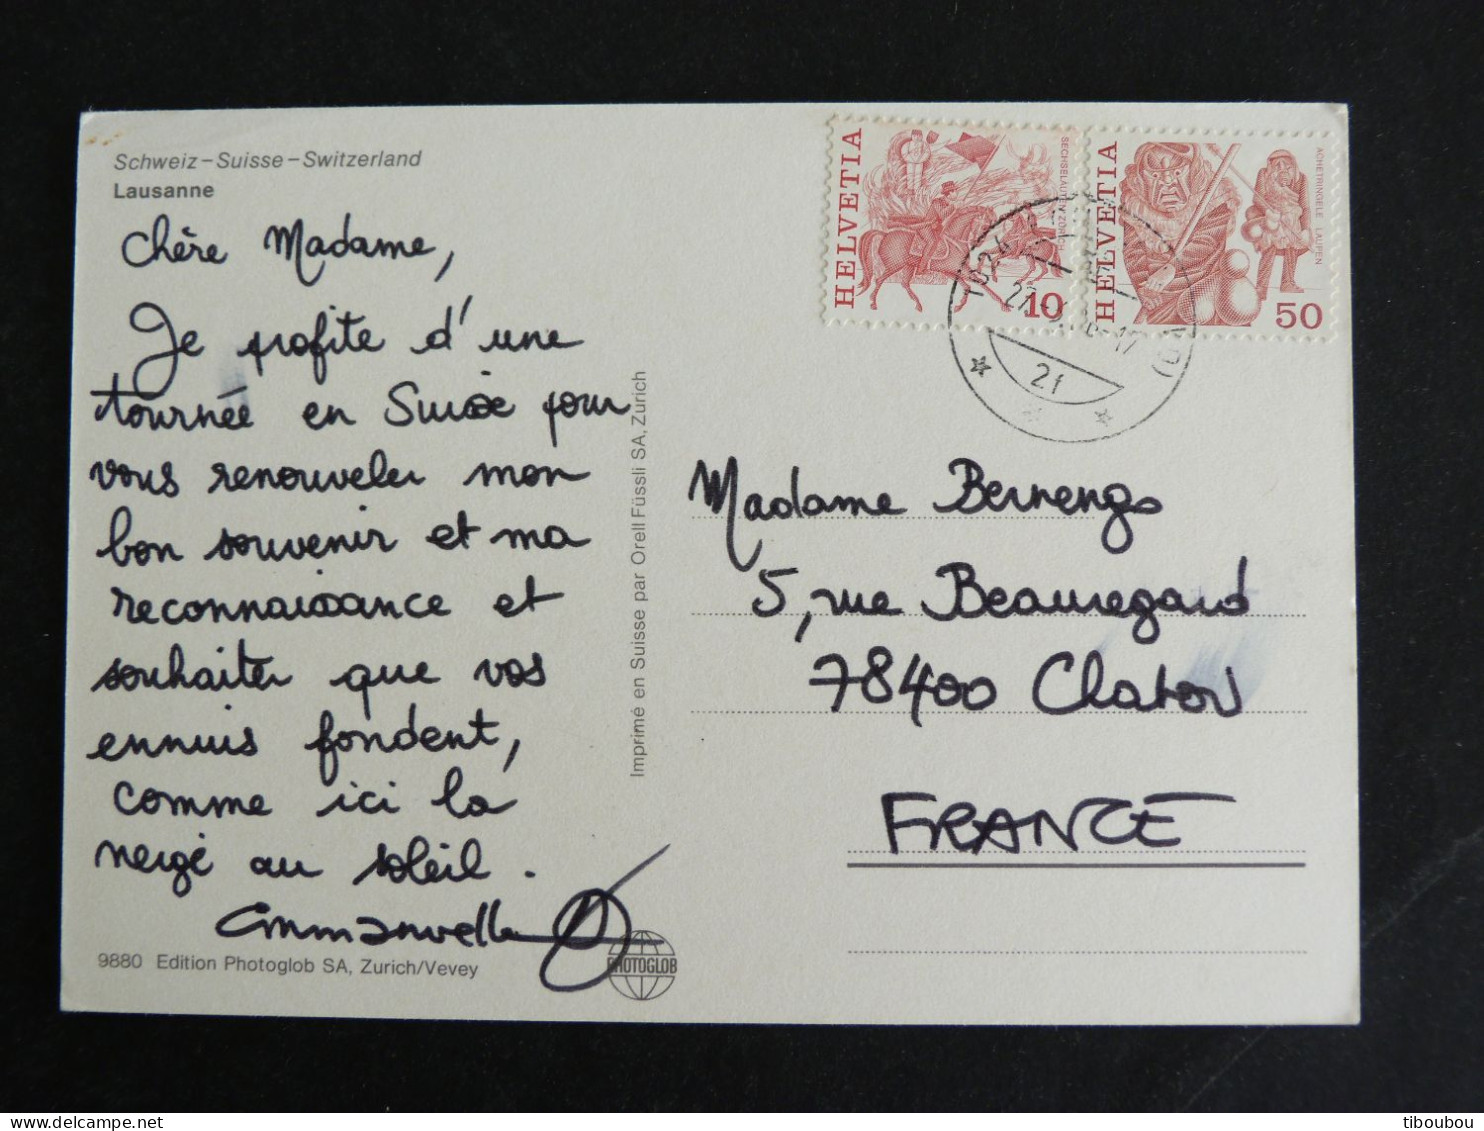 Schweiz – Suisse – Switzerland
Lausanne
Chère Madame,
Je profite d'une
tournée en Suisse pour
vous renouveler mon
bon souvenir et ma
reconnaissance et
souhaiter que vos
ennuis fondent,
comme ici la
neige au soleil.
Emmanuelle
9880 Edition Photoglob SA, Zurich/Vevey
PHOTOGLOB
Imprimé en Suisse par Orell Füssli SA, Zurich
HELVETIA
SECHSELÄUTEN ZÜRICH
10
HELVETIA
ACHETRINGELE LAUPEN
50
2f
Madame Bernengo
5, rue Beauregard
78400 Chatou
FRANCE
tiboubou